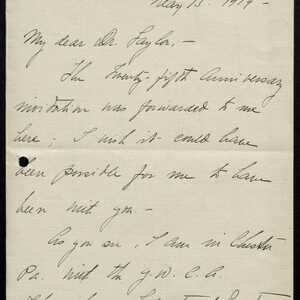 May 13. 1919 -
My dear Dr. Taylor, -
The Twenty-fifth Anniversary
invitation was forwarded to me
here; I wish it could have
been possible for me to have
been with you -
As you see, I am in Chester
Pa. with the Y.W.C.A.